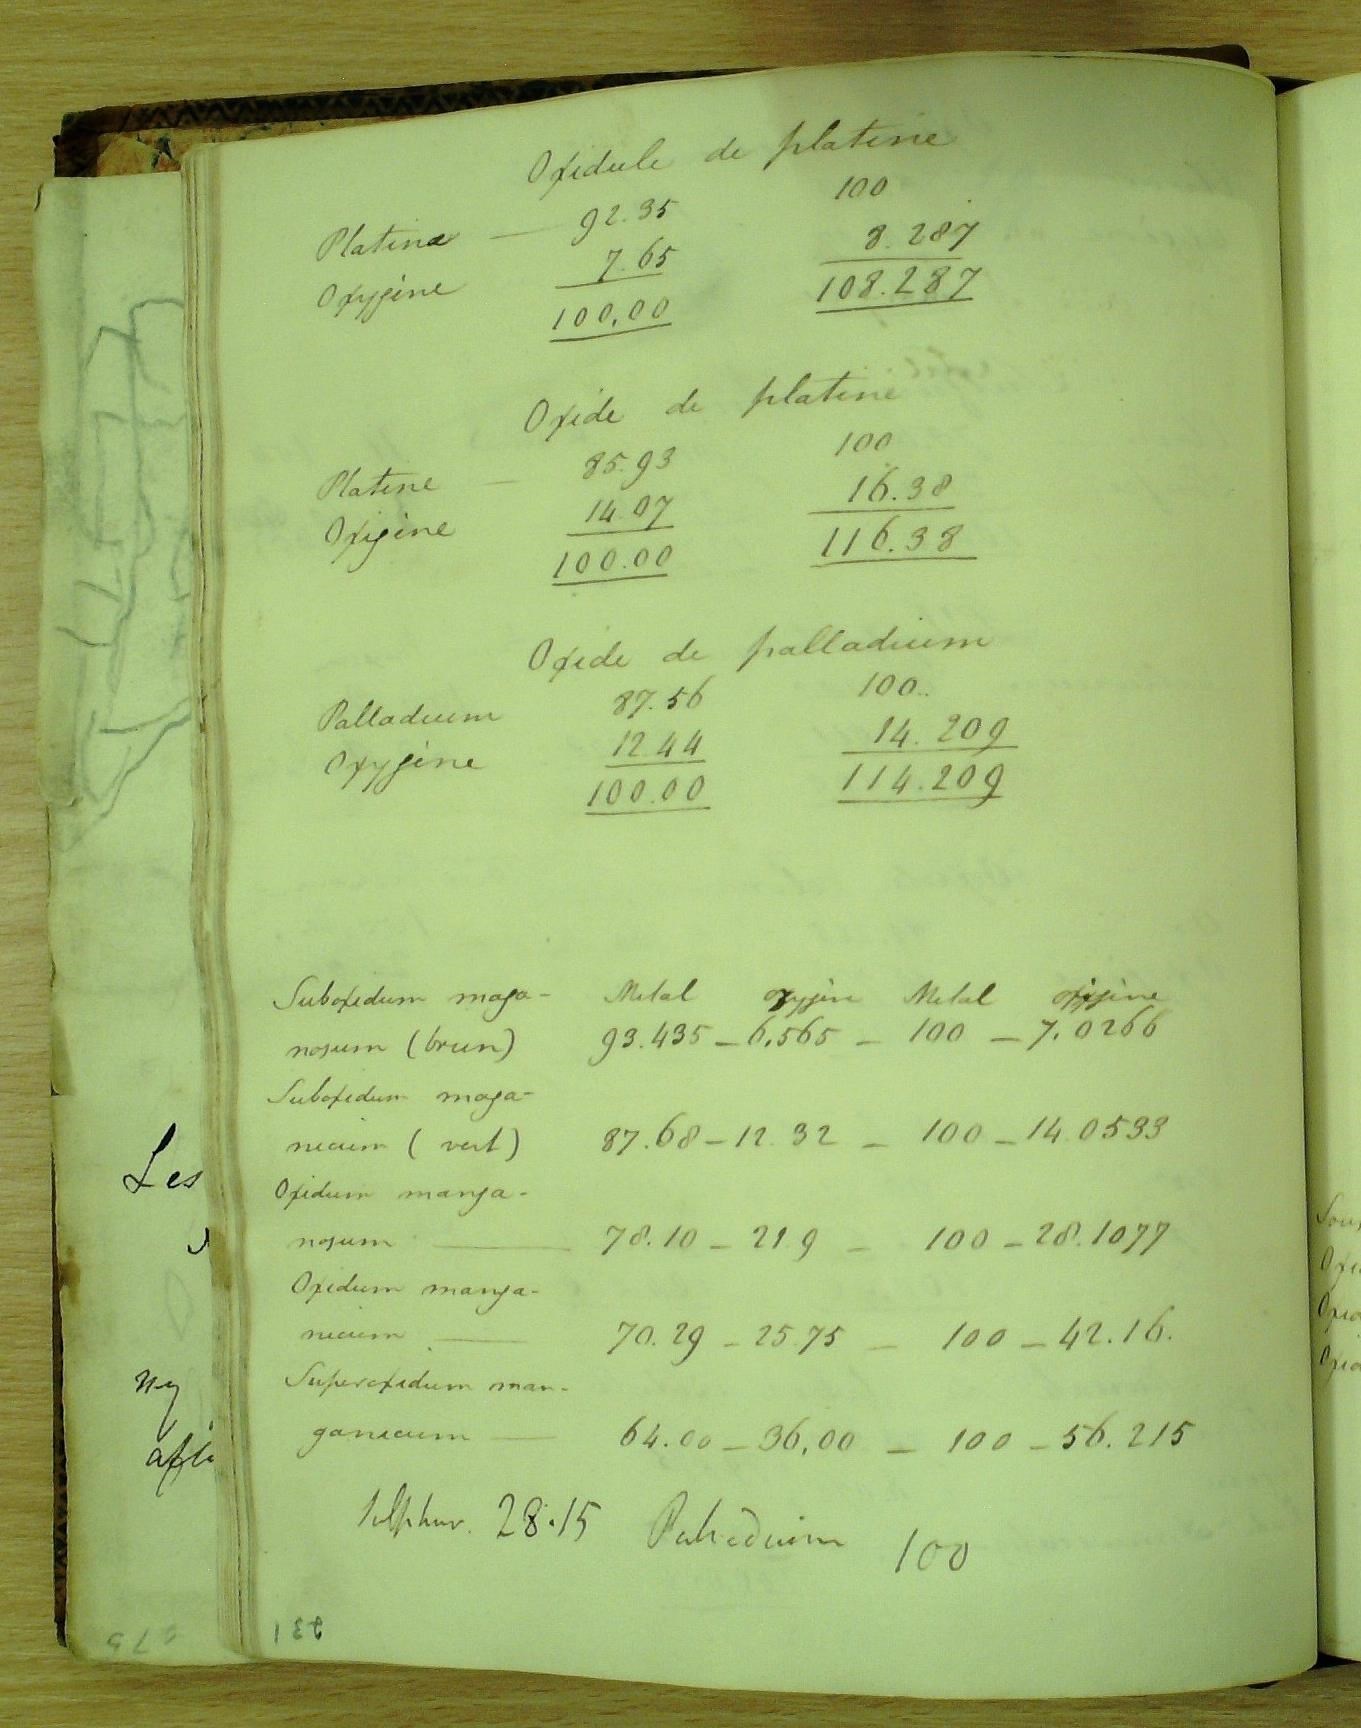 Oxidule de platine
Platine — 92.35 100
Oxygine 7.65 8.287
100,00 108.287
Oxide de platine
Platine — 85.93 100
Oxigine 14.07 16.38
100.00 116.38
Oxide de palladium
Palladium 87.56 100.
Oxygine 12.44 14.209
100.00 114.209
Suboxidum maga- Metal oxygine Metal oxigine
nosum (brun) 93.435 – 6,565 – 100 – 7,0266
Suboxidum maga-
nicum (vert) 87.68 – 12.32 – 100 – 14.0533
Oxidum manga-
nosum — 78.10 – 21.9 – 100 – 28.1077
Oxidum manga-
nicum — 70.29 – 25.75 – 100 – 42.16.
Superoxidum man-
ganicum — 64.00 – 36,00 – 100 – 56.215
Sulphur. 28.15 Palladium 100
Les